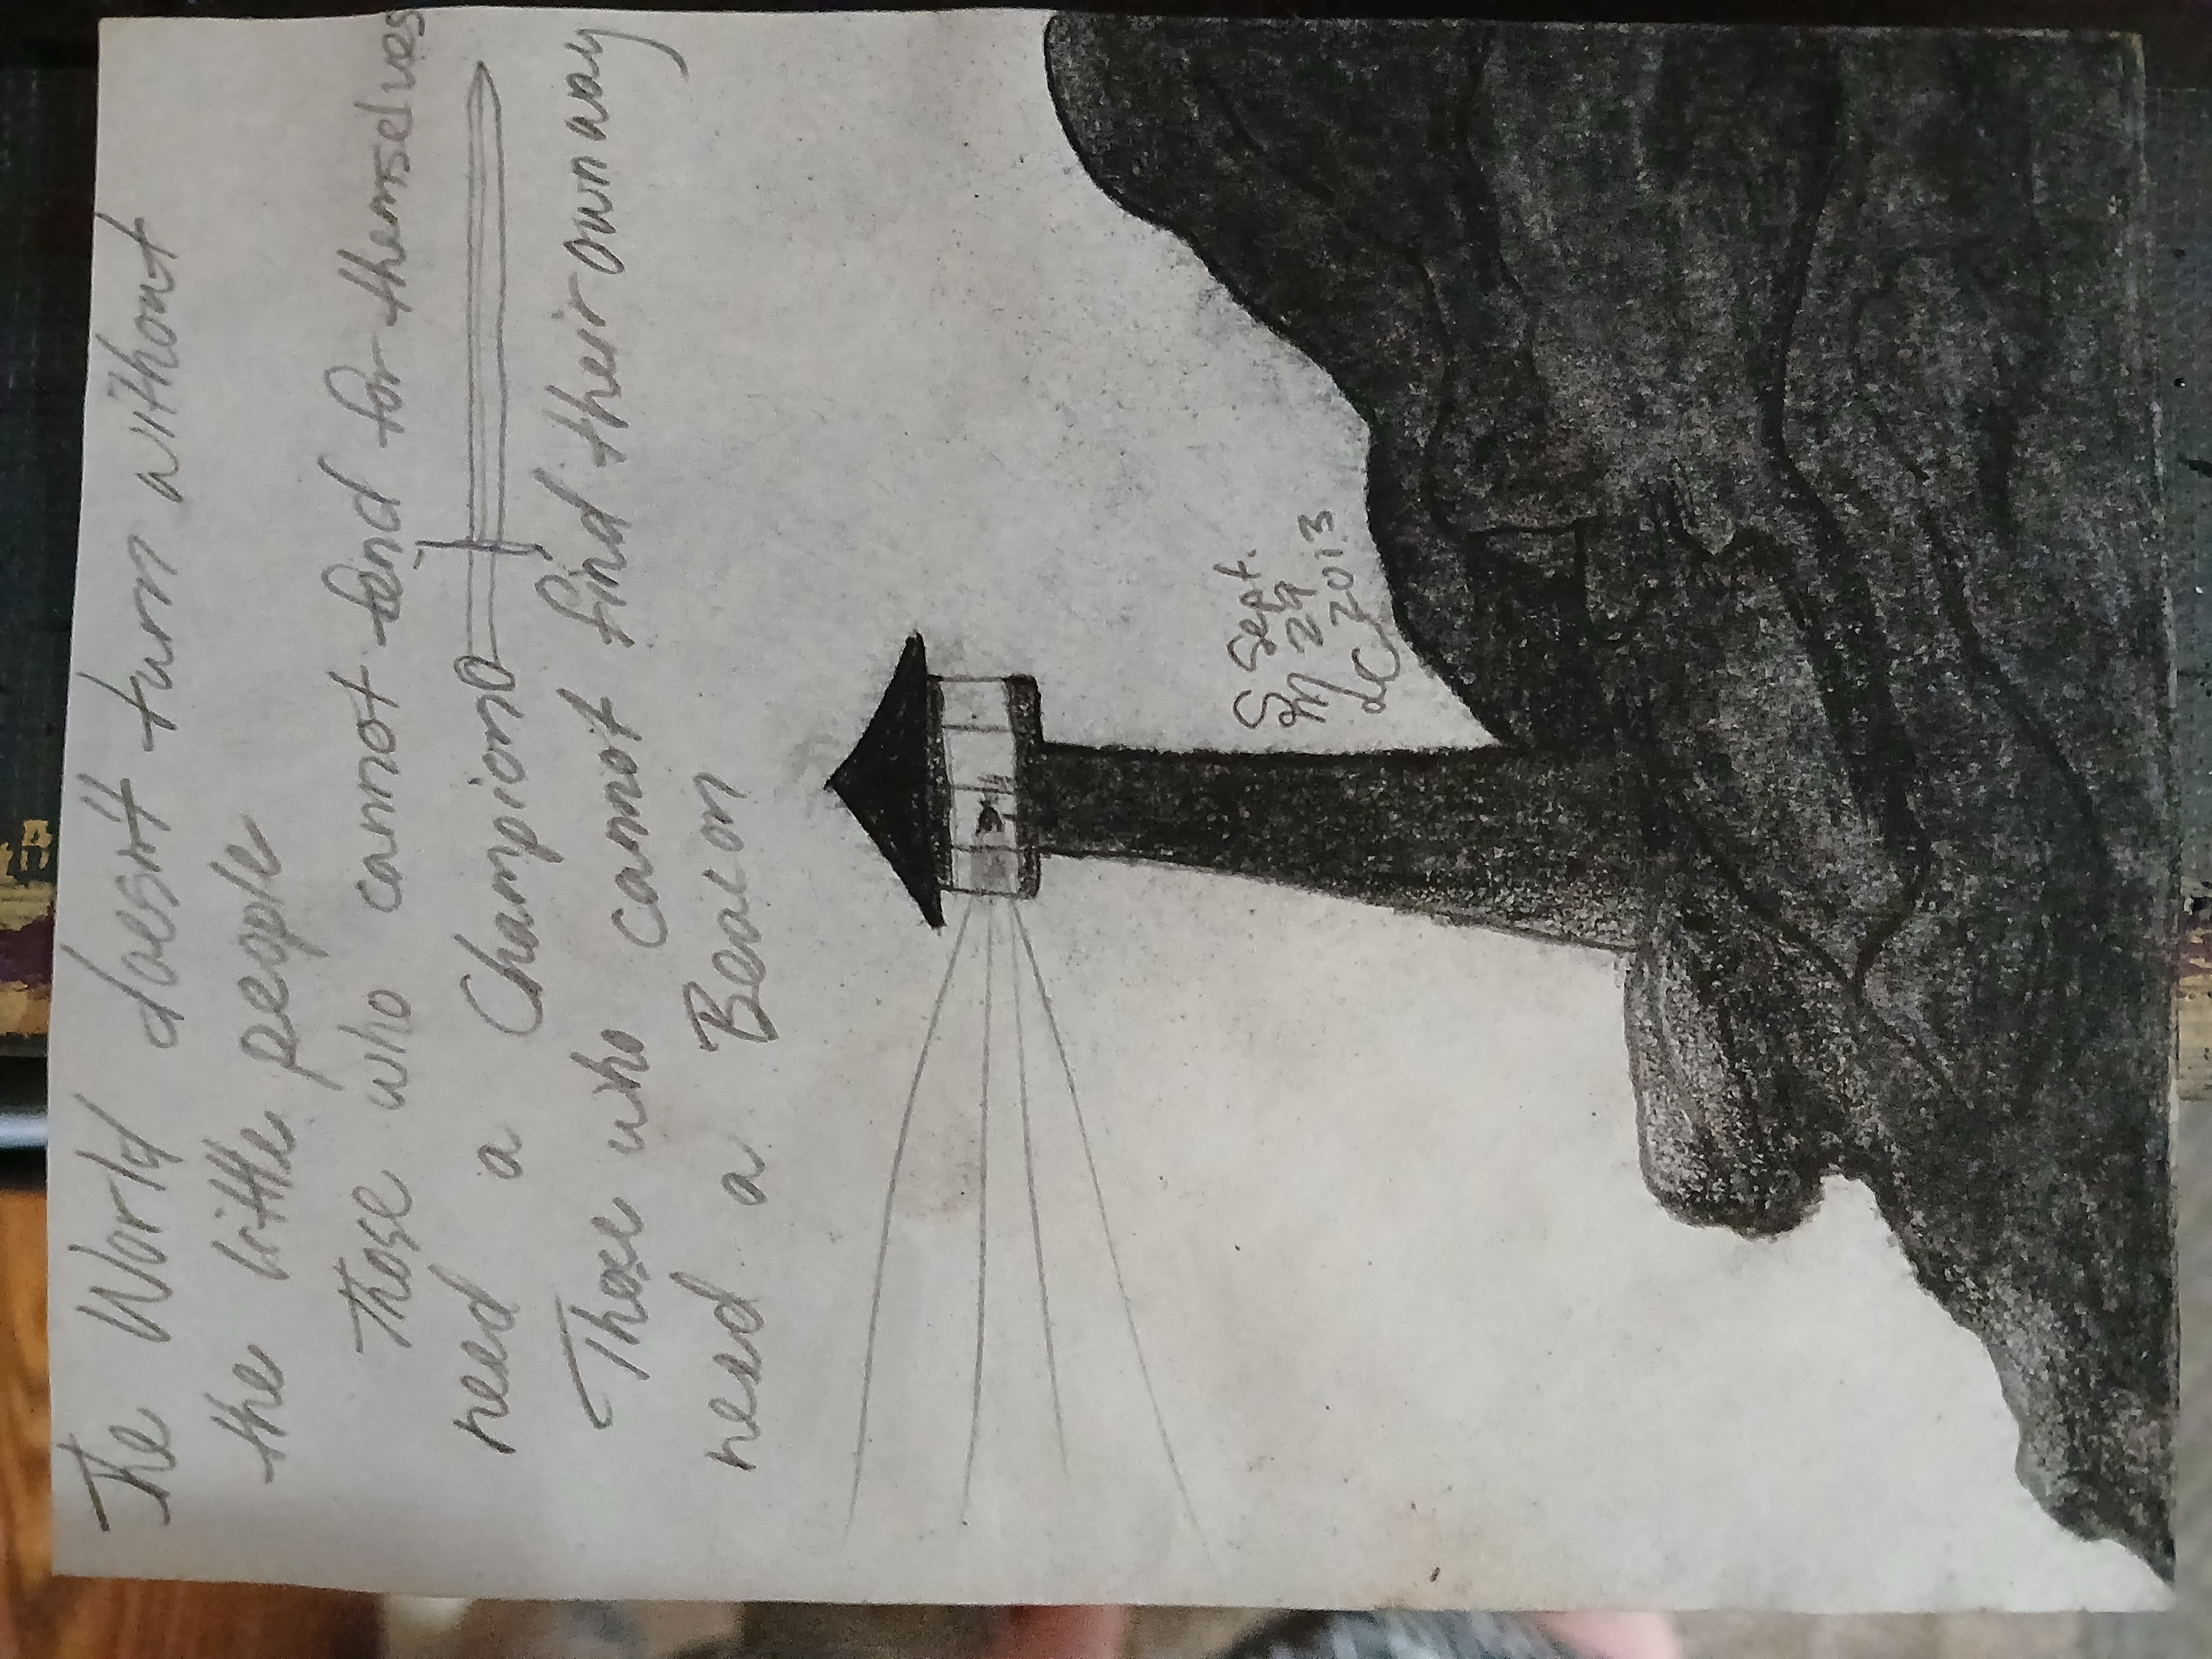 The World doesn't turn without
the little people
Those who cannot fend for themselves
need a Champion
Those who cannot find their own way
need a Beacon
Sept.
29
2013